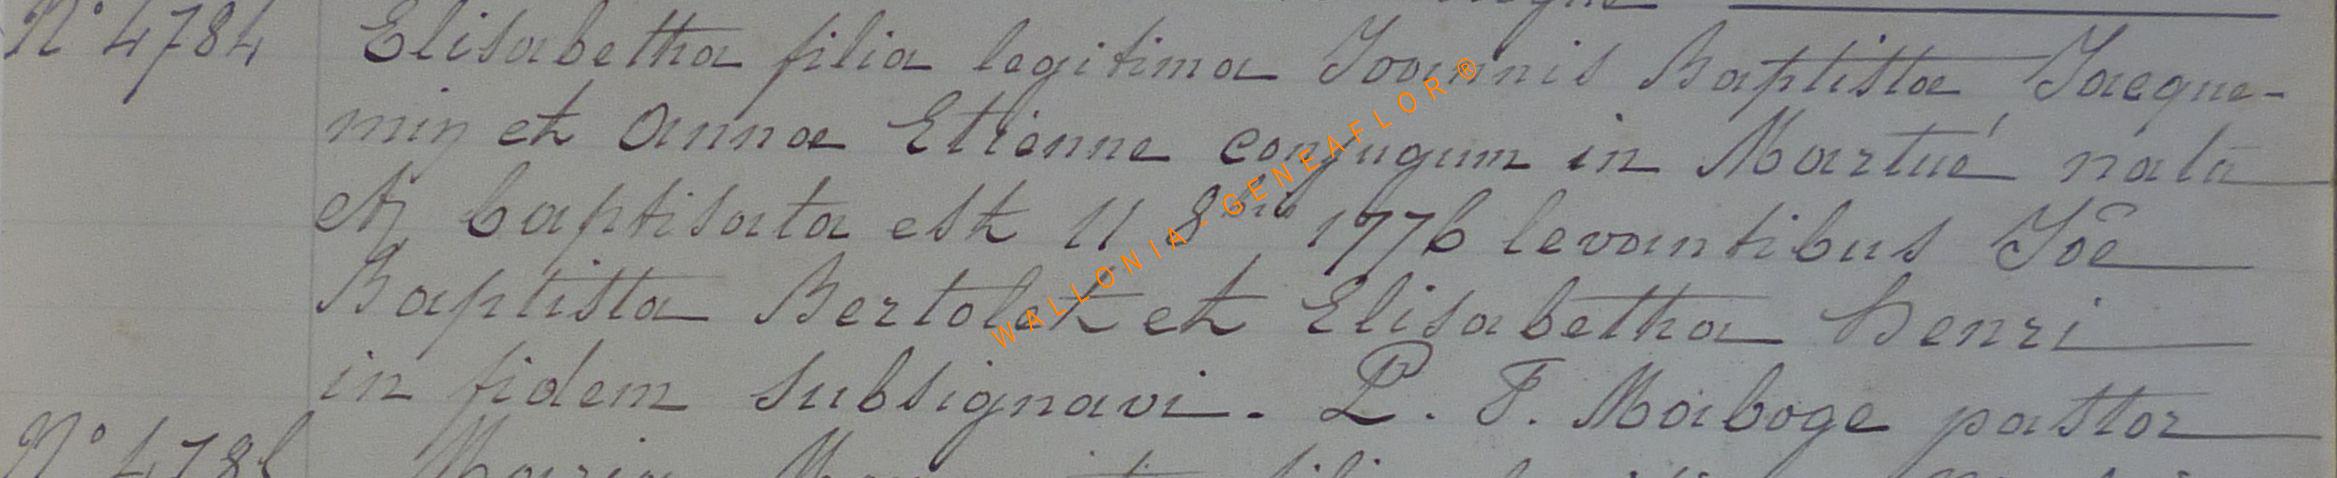 N° 4784 Elisabetha filia legitima Joannis Baptistæ Jacque-
min et Annæ Etienne conjugum in Martué nata
et baptisata est 11 8bris 1776 levantibus Joê
Baptista Bertolet et Elisabetha Henri
in fidem subsignavi. P. F. Maboge pastor
WALLONIA-GENEAFLOR®
N° 478
Maria